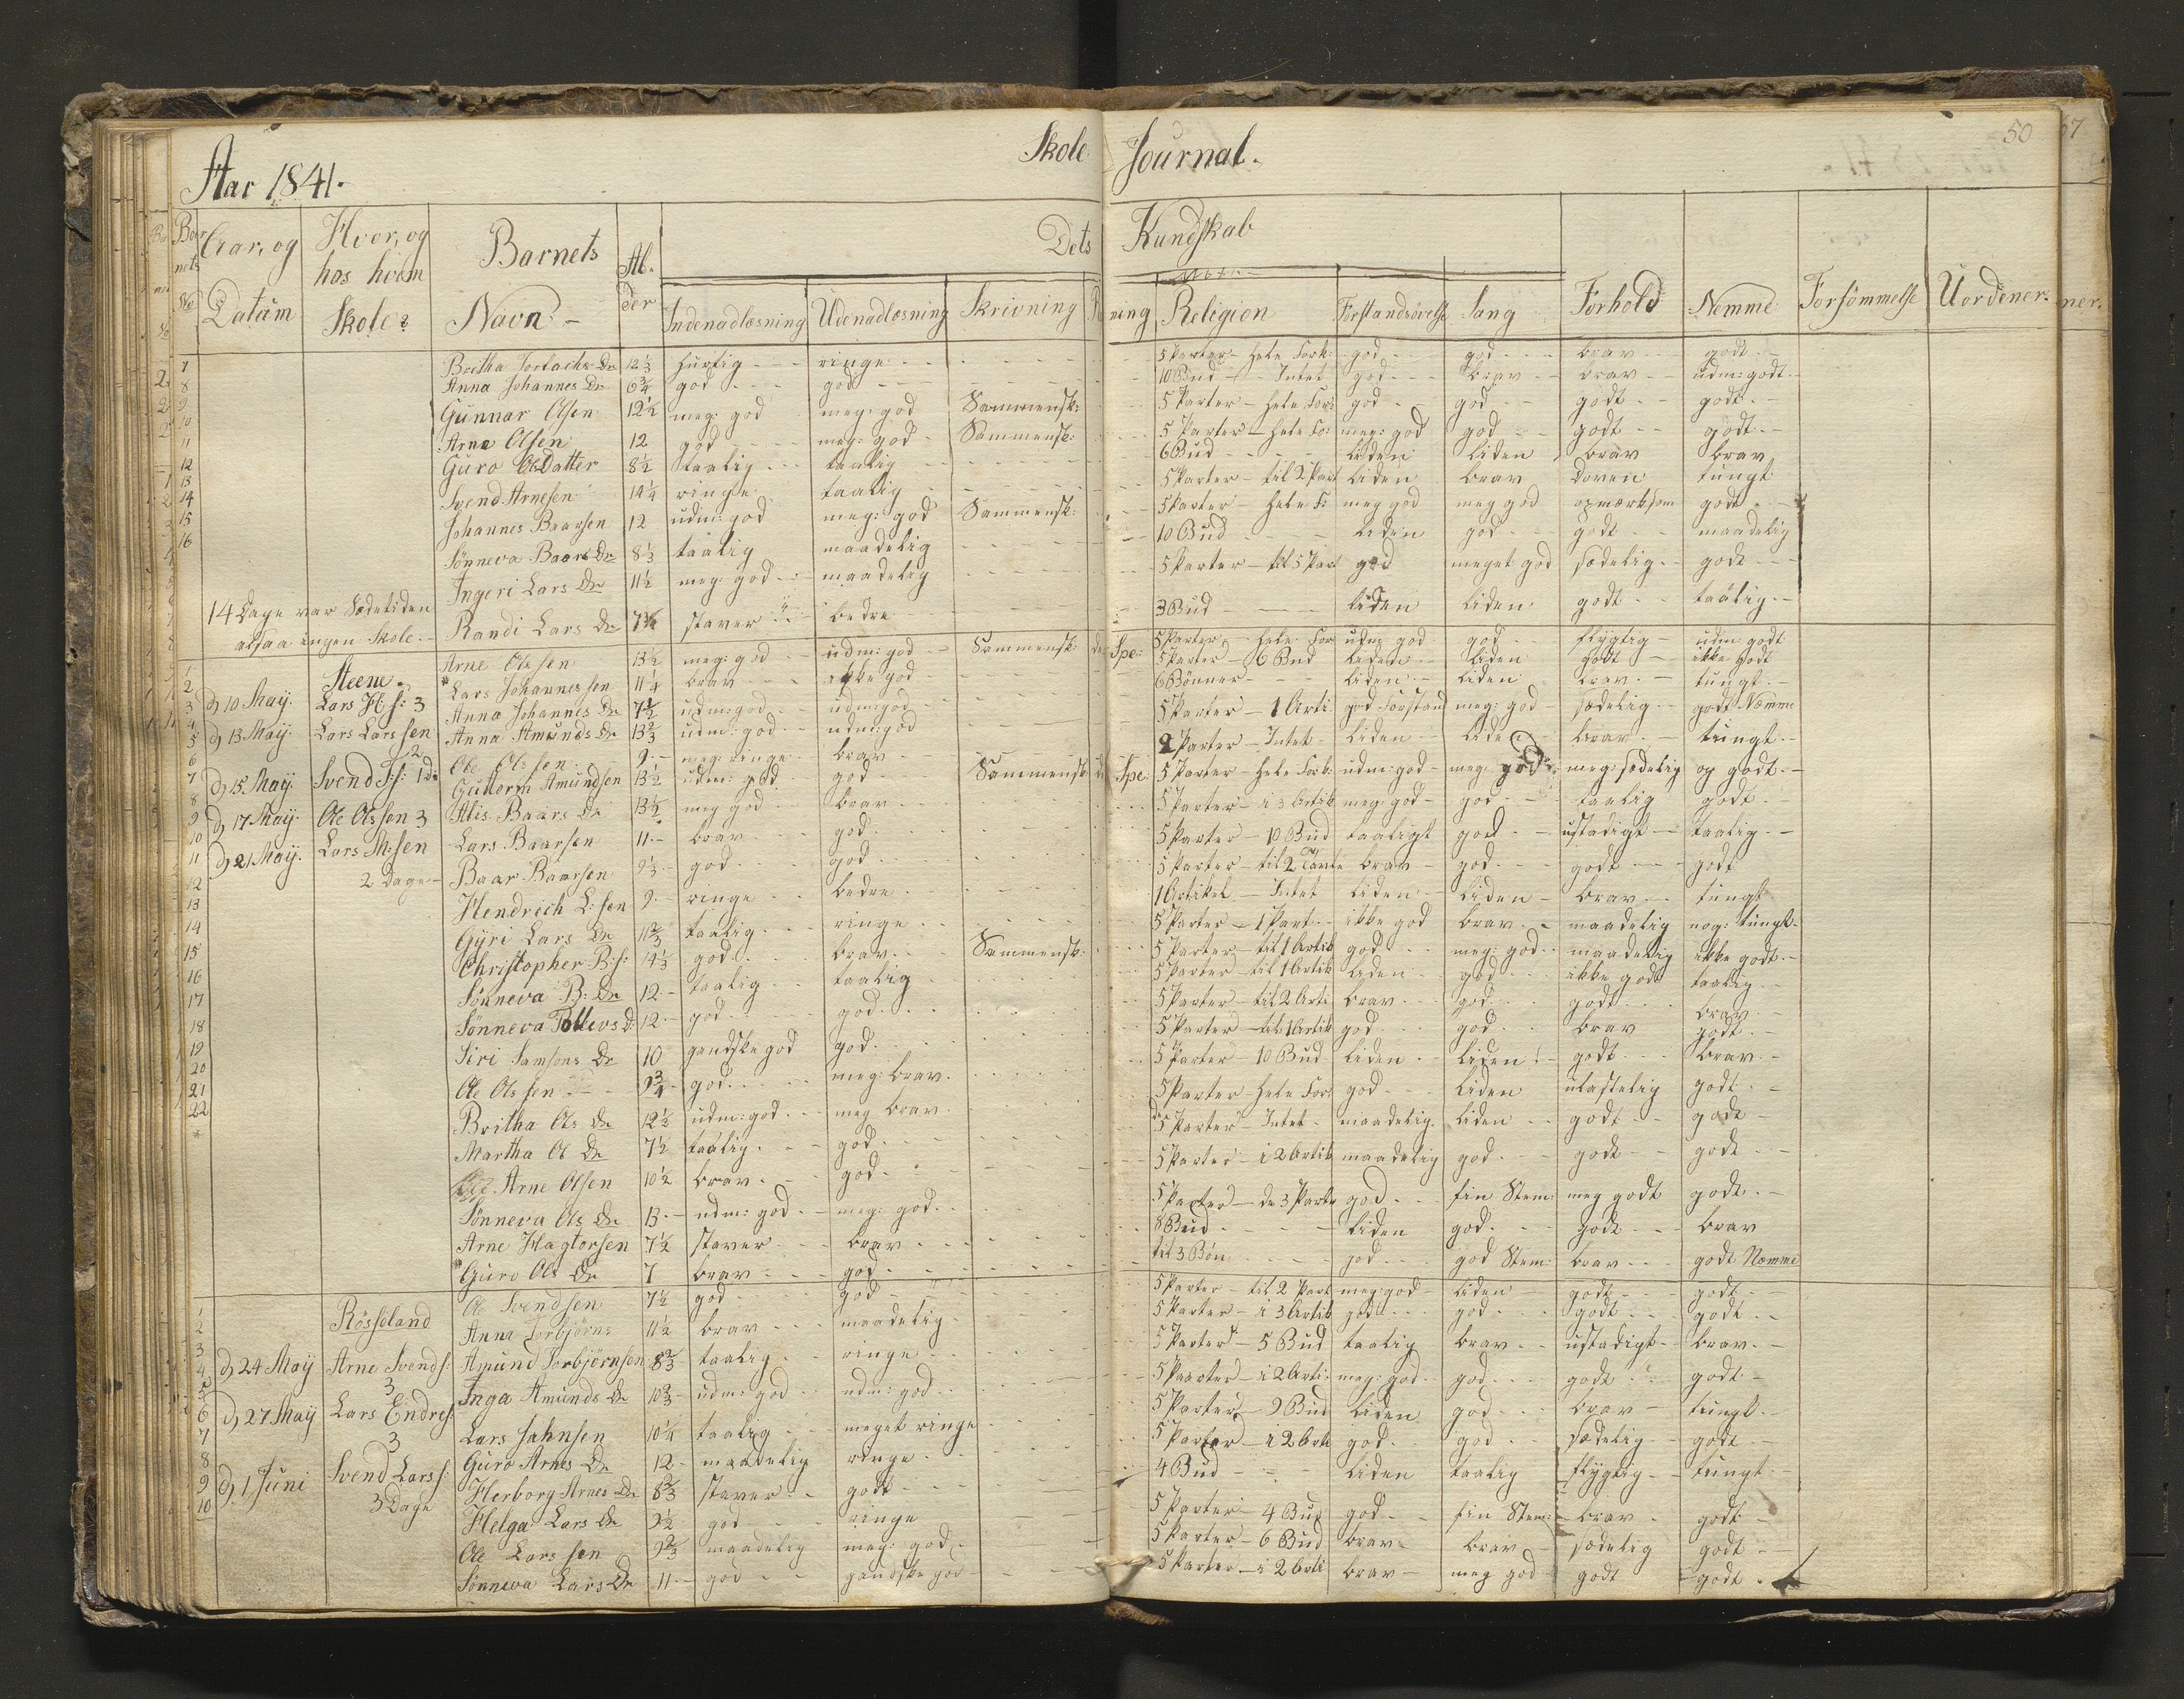 Skole Journal.
50
67
Aar 1841.
Bar
nets
No
Aar, og
Datum
Hvor, og
hos hvem
Skole?
Barnets
Navn
Al-
der
Dets Kundskab
Indenadlæsning Udenadlæsning Skrivning R ning Religion Forstandsøvelse Sang Forhold Nemme Forsömmelse Uordener.
7 Britha Torlachs Dr 12⅓ hurtig ringe 5 Parter - hele Fork: god god brav godt
8 Anna Johannes Dr 6¾ god god 10 Bud - Intet god brav brav udm: godt
9 Gunnar Olsen 12½ meg: god meg: god Sammensk: 5 Parter - hele For: god god godt godt
10 Arne Olsen 12 god meg: god Sammensk: 5 Parter - hele Fo: meg: god god godt godt
11 Guro Ols Datter 8½ taalig taalig 6 Bud liden liden brav brav
12 Svend Arnesen 14¼ ringe taalig 5 Parter - til 2 Part liden brav doven tungt
13 Johannes Baarsen 12 udm: god meg: god Sammensk: 5 Parter - hele F: meg god meg god opmærksom godt
14 Sönneva Baars Dr 8⅓ taalig maadelig 10 Bud liden god godt maadelig
15 Ingeri Lars Dr 11½ meg: god maadelig 5 Parter - til 5 Part god meget god sædelig godt
16 Randi Lars Dr staver bedre 3 Bud liden liden godt taalig
14 Dage var Sædetiden
altsaa ingen Skole.
Steene.
1 Arne Olssen 13½ meg: god udm: god Sammensk: Spe: 5 Parter - hele For udm: god god flygtig udm godt
2 Lars Johannessen 11¼ brav ikke god 5 Parter - 6 Bud liden liden godt ikke godt
3 d. 10 May. Lars H s: 3 Anna Johannes Dr 7½ udm: god udm: god 6 Bönner liden liden brav tungt
4 d. 13 May. Lars Larssen 2 Anna Amunds Dr 13⅔ udm: god udm: god 5 Parter - 1 Arti god Forstand meg: god sædelig godt Nemme
5 Ole Olssen 9 meg: ringe brav 2 Parter - Intet liden liden brav tungt
6 d. 15. May. Svend S s: 1 d. Guttorm Amundsen 13½ udm: god god Sammensk: Spe: 5 Parter - hele Fork: udm: god meg: god meg: sædelig og godt
7 Alis Baars Dr 13½ meg god brav 5 Parter - i 3 Artik meg: god god taalig godt
8 d. 17 May. Ole Olssen 3 Lars Baarsen 11 brav god 5 Parter - 10 Bud taaligt god ustadigt taalig
9 d. 21 May. Lars M:sen Baar Baarsen 9⅓ god god 5 Parter - til 2 Parte brav god godt godt
10 2 Dage Hendrich L:sen 9 ringe bedre 1 Artikel - Intet liden liden brav tungt
11 Gyri Lars Dr 11⅔ taalig ringe 5 Parter - 1 Part ikke god brav maadelig nog: tungt
12 Christopher B:s: 14⅓ god brav Sammensk: 5 Parter til 1 Artik god meg: god maadelig ikke godt
13 Sönneva B: Dr 12 taalig taalig 5 Parter - til 1 Artik liden god ikke godt taalig
14 Sönneva Tollevs D: 12 god god 5 Parter - til 2 Arti brav god godt brav
15 Siri Samsons Dr 10 gandske god god 5 Parter - til 1 Artik god god brav godt
16 Ole Olssen 9¾ god meg: brav 5 Parter - 10 Bud liden liden godt brav
17 Britha Ols Dr 12½ udm: god meg brav 5 Parter hele For: god liden ulastelig godt
18 Martha Ol Dr 7½ taalig god 5 Parter - Intet maadelig liden godt godt
19 Arne Olsen 10½ brav god 5 Parter - i 2 Artik maadelig god godt godt
20 Sönneva Ols Dr 13 udm: god meg: god 5 Parter - de 3 Parte god fin Stem: meg godt godt
21 Arne Hagtorsen 7½ staver brav 8 Bud liden god godt brav
22 Guro Ols Dr 7 brav god til 3 Bön god god Stem: brav godt Nemme
Rösseland
1 Ole Svendsen 7½ god god 5 Parter - til 2 Part meg: god liden godt godt
2 Anna Torbjörns 11½ brav maadelig 5 Parter - i 3 Artik god god godt godt
3 d. 24 May Arne Svends: 3 Amund Torbjörnsen 8⅔ taalig ringe 5 Parter - 5 Bud taalig brav ustadigt brav
4 Inga Amunds Dr 10⅔ udm: god udm: god 5 Parter - i 2 Arti meg: god god godt godt
5 d. 27 May Lars Endres: 3 Lars Jahnsen 10¼ taalig meget ringe 5 Parter - 9 Bud liden god brav tungt
6 Guro Arnes Dr 12 maadelig ringe 5 Parter - i 2 Arti god god sædelig godt
7 d. 1 Juni Svend Larss: 3 Dage Herborg Arnes Dr 8⅔ staver godt 4 Bud liden taalig flygtig tungt
8 Helga Lars Dr 9½ god ringe 5 Parter - 4 Bud god fin Stem: brav godt
9 Ole Larssen 9⅔ maadelig meg: god 5 Parter - 6 Bud brav brav sædelig godt
10 Sönneva Lars Dr 11 god gandske god 5 Parter - i 2 Arti brav meg god godt godt